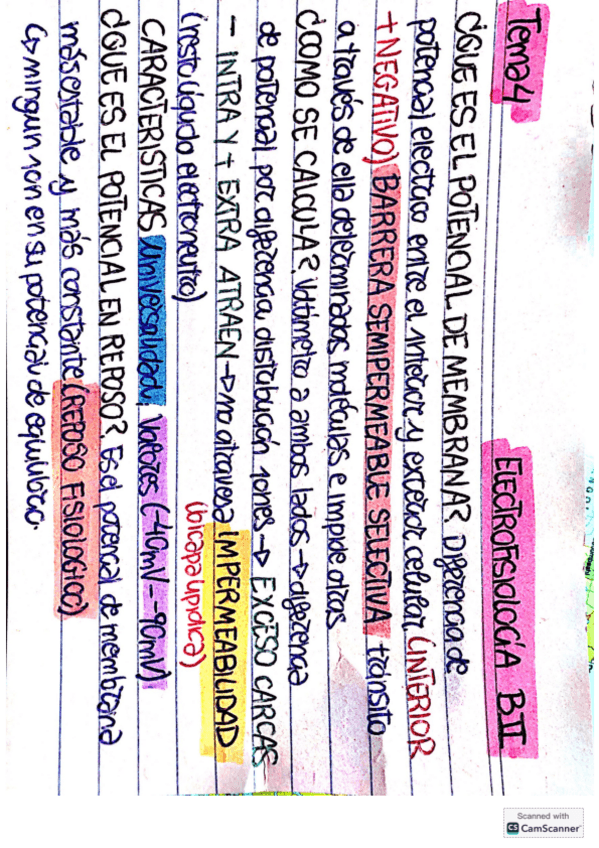 Tema 4 ELECTROFISIOLOGÍA BII
¿QUE ES EL POTENCIAL DE MEMBRANA? Diferencia de
potencial electrico entre el interior y exterior celular (INTERIOR
+ NEGATIVO) BARRERA SEMIPERMEABLE SELECTIVA tránsito
a través de ella determinados moléculas e impide otras
¿COOMO SE CALCULA? Voltímetro a ambos lados → diferencia
de potencial por diferencia distribución iones → EXCESO CARGAS
- INTRA Y + EXTRA ATRAEN → no atraviesa IMPERMEABILIDAD
(resto líquido electroneutro) (bicapa lipídica)
CARACTERISTICAS Universalidad, Valores (-40mV - -90mV)
¿QUE ES EL POTENCIAL EN REPOSO? Es el potencial de membrana
más estable y más constante (REPOSO FISIOLOGICO)
↳ ningun ion en su potencial de equilibrio.
Scanned with
CS CamScanner